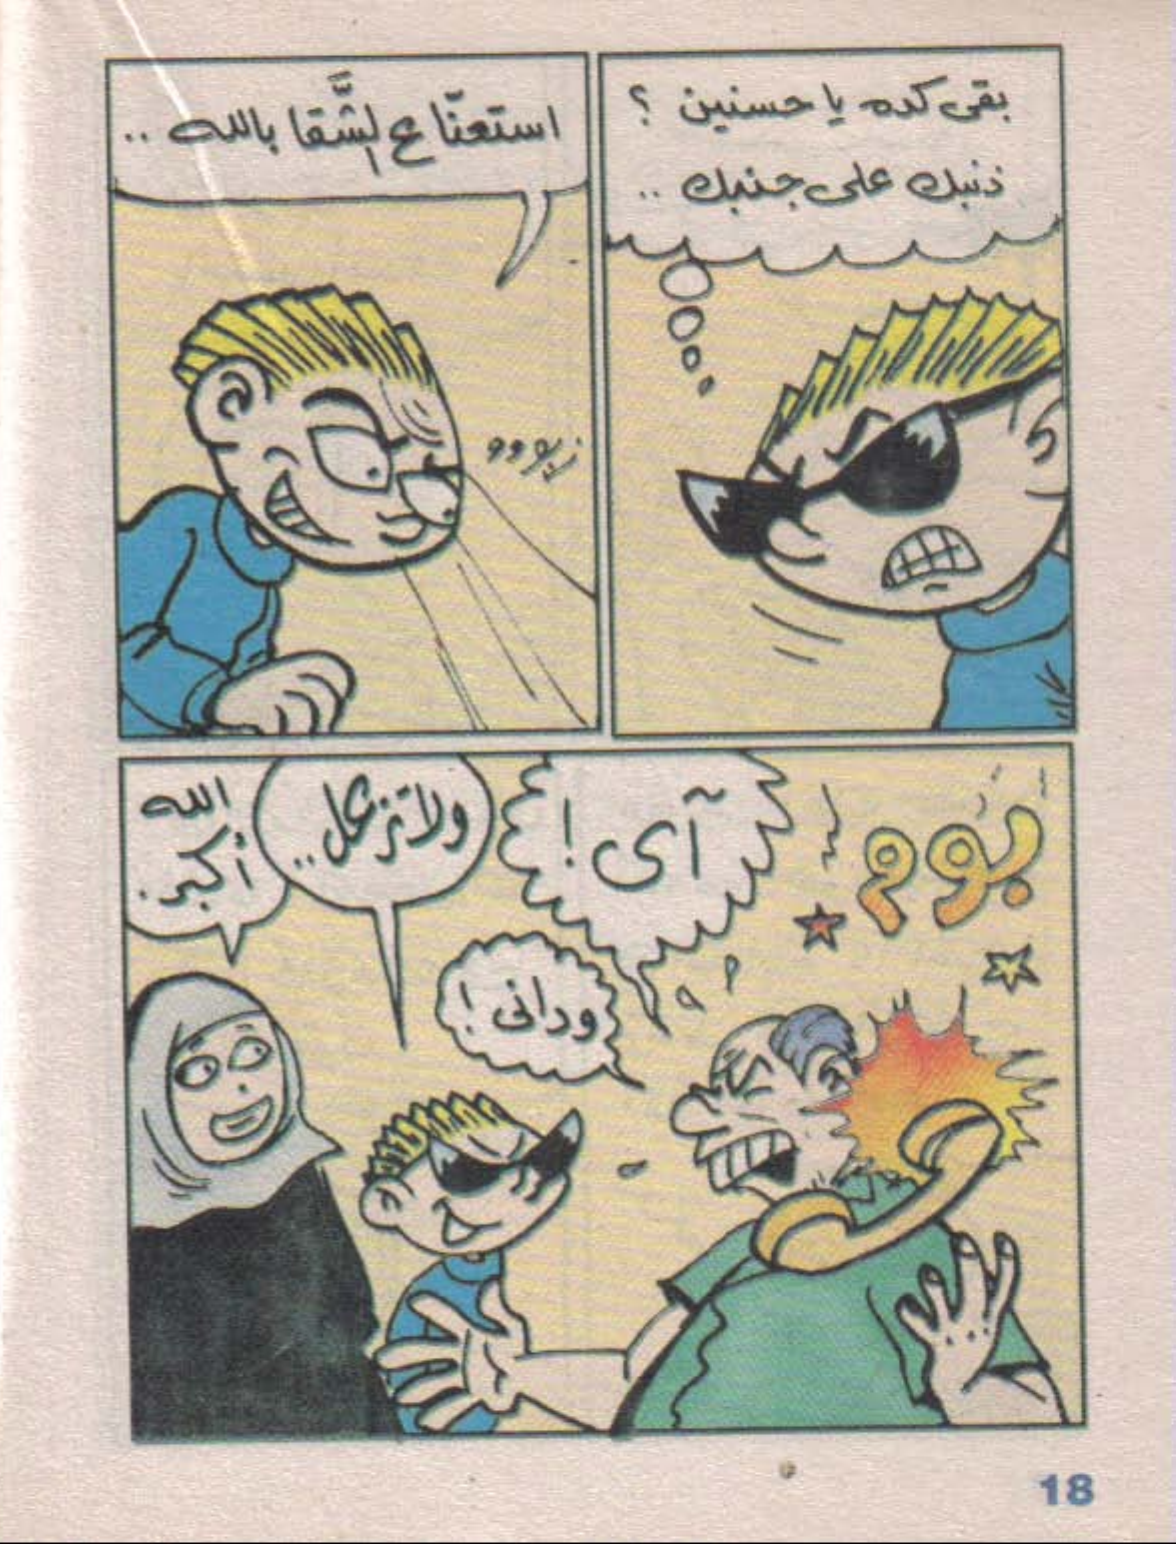 بقى كده يا حسنين ؟
ذنبك على جنبك ..
استعنّا ع الشَّقا بالله ..
زيووو
بوم
آى !
ودانى !
ولا تزعل ..
الله
أكبر .
18